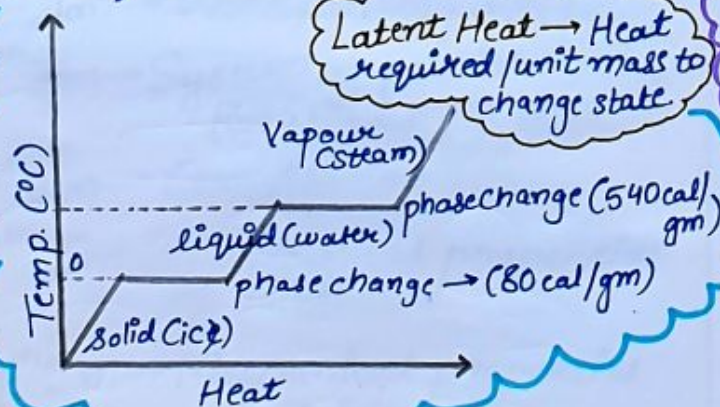 Latent Heat → Heat
required/unit mass to
change state
Vapour
(steam)
phase change (540 cal/
gm)
liquid (water)
0
phase change → (80 cal/gm)
solid (ice)
Temp. (°C)
Heat